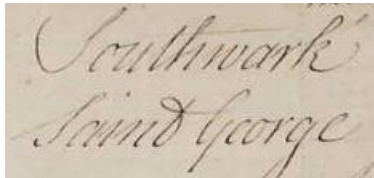 Southwark
Saint George